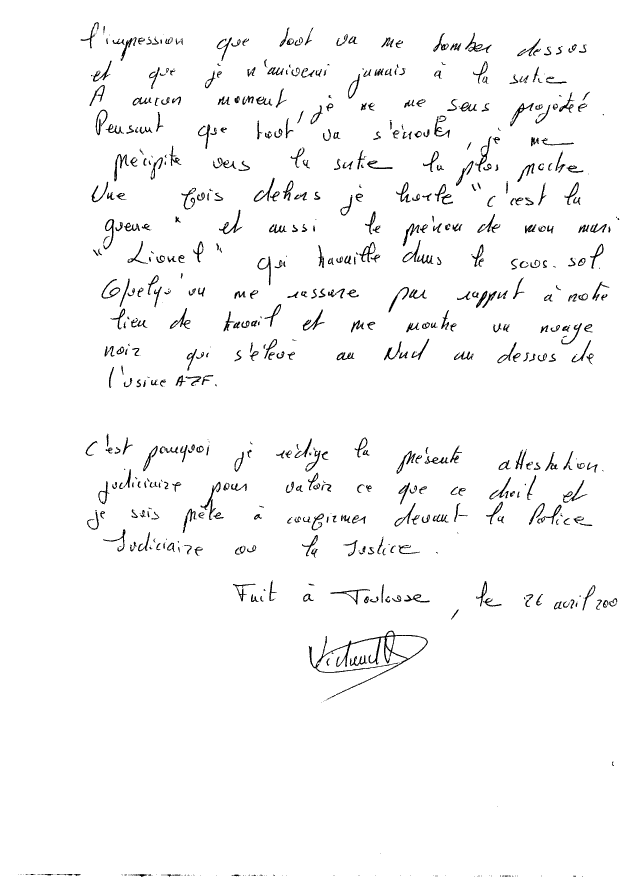 l'impression que tout va me tomber dessus
et que je n'arriverai jamais à la sortie
A aucun moment, je ne me sens projetée.
Pensant que tout va s'écrouler, je me
précipite vers la sortie la plus proche.
Une fois dehors je hurle "c'est la
guerre" et aussi le prénom de mon mari
"Lionel" qui travaille dans le sous-sol.
Quelqu'un me rassure par rapport à notre
lieu de travail et me montre un nuage
noir qui s'élève au Nord au dessus de
l'usine AZF.
C'est pourquoi je rédige la présente attestation
judiciaire pour valoir ce que ce droit et
je suis prête à confirmer devant la Police
Judiciaire ou la Justice.
Fait à Toulouse, le 26 avril 200